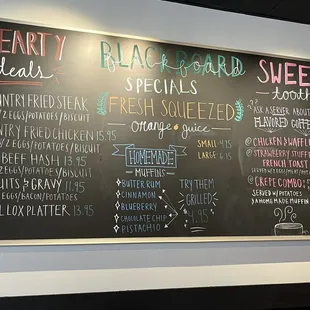 EARTY
deals
NTRY FRIED STEAK
2 EGGS/POTATOES/BISCUIT
NTRY FRIED CHICKEN 15.95
2 EGGS/POTATOES/BISCUIT
BEEF HASH 13.95
2 EGGS/POTATOES/BISCUIT
UITS & GRAVY 11.95
EGGS/BACON/POTATOES
LOX PLATTER 13.95
BLACKBOARD
SPECIALS
FRESH SQUEEZED
orange juice
SMALL 4.15
LARGE 6.15
HOMEMADE
MUFFINS
BUTTER RUM
CINNAMON
BLUEBERRY
CHOCOLATE CHIP
PISTACHIO
TRY THEM
GRILLED
4.95
SWEE
tooth
ASK A SERVER ABOUT
FLAVORED COFFE
@ CHICKEN & WAFFLE
@ STRAWBERRY STUFFE
FRENCH TOAST
@ CREPE COMBO
SERVED W/POTATOES
& A HOMEMADE MUFFIN